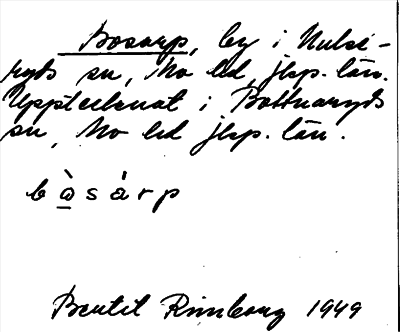 Bosarp, by i Nulsé-
ryds sn, Mo hd, Jkp. län.
Upptecknat i Bottnaryds
sn, Mo hd Jkp. län.
bòsárp
Bertil Rimborg 1949